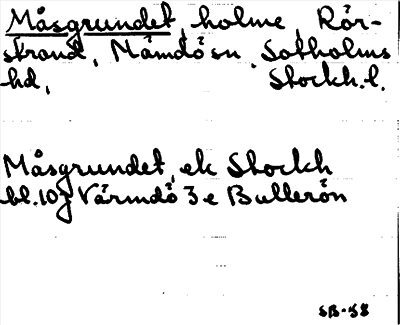 Måsgrundet, holme, Rör-
strand, Nämdö sn Sotholms
hd, Stockh.l.
Måsgrundet, ek Stockh
bl.107 Värmdö 3e Bullerön
SB-58